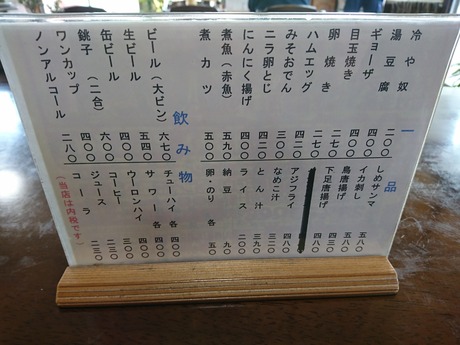 一品
冷や奴 二〇〇
湯豆腐 四〇〇
ギョーザ 四〇〇
目玉焼き 二七〇
卵焼き 二七〇
ハムエッグ 四〇〇
みそおでん 三〇〇
ニラ卵とじ 四二〇
にんにく揚げ 四〇〇
煮魚（赤魚） 五九〇
煮カツ 五〇〇
しめサンマ 五八〇
イカ刺し 五八〇
鳥唐揚げ 四三〇
下足唐揚げ 四八〇
アジフライ 四八〇
なめこ汁 三二〇
とん汁 三九〇
ライス 二〇〇
納豆 九〇
卵・のり 各 五〇
飲み物
ビール（大ビン） 六七〇
生ビール 五四〇
缶ビール 四〇〇
銚子（二合） 六〇〇
ワンカップ 四〇〇
ノンアルコール 二八〇
チューハイ各 四〇〇
サワー各 四〇〇
ウーロンハイ 三〇〇
コーヒー 二〇〇
ジュース 二三〇
コーラ 二三〇
（当店は内税です）